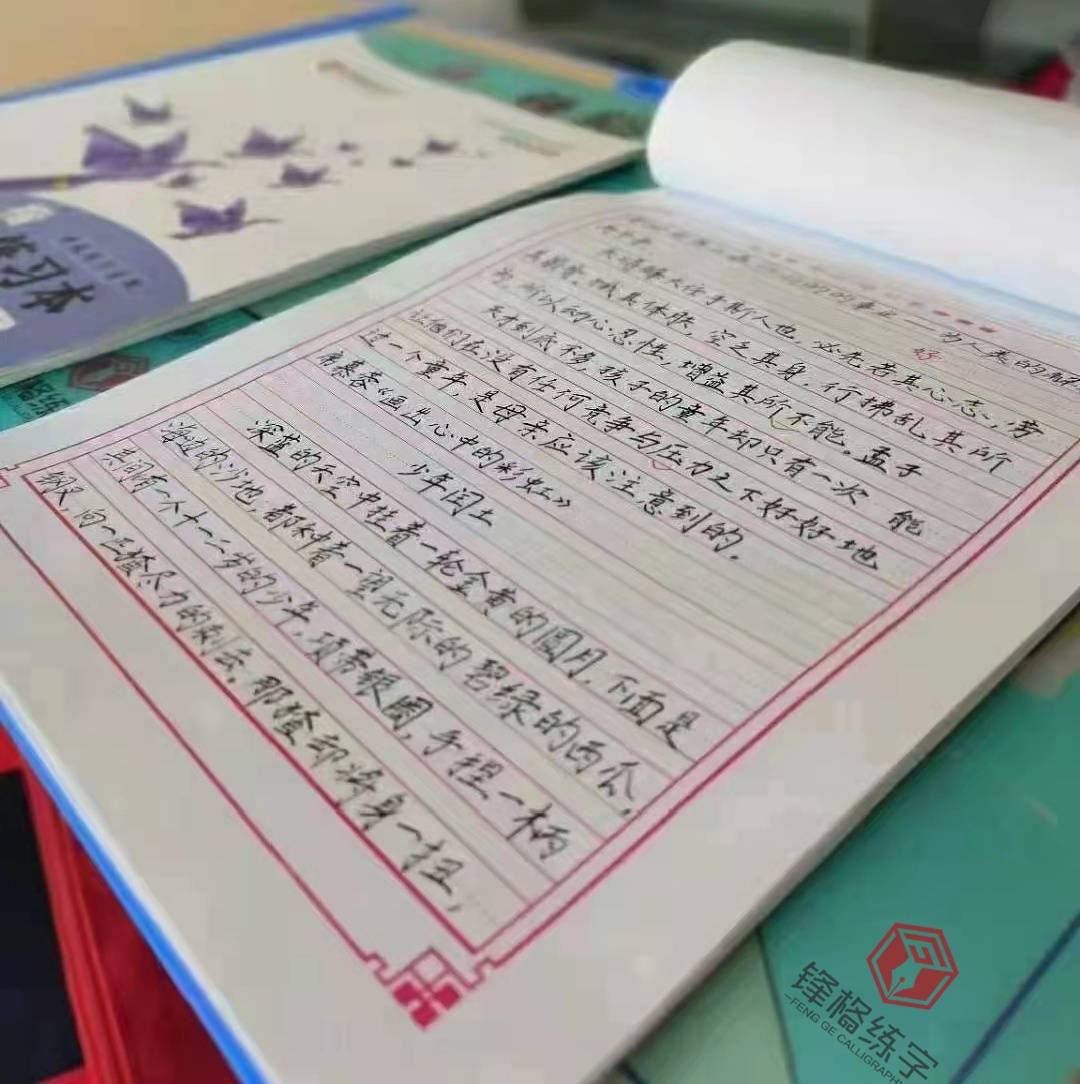 练习本
为人类的解
天将降大任于斯人也，必先苦其心志，劳
其筋骨，饿其体肤，空乏其身，行拂乱其所
为，所以的心忍性，增益其所不能。孟子
天才到底不多，孩子的童年却只有一次 能
让他们在没有任何竞争与压力之下好好地
过一个童年，是母亲应该注意到的。
席慕蓉《画出心中的彩虹》
少年闰土
深蓝的天空中挂着一轮金黄的圆月，下面是
海边的沙地，都种着一望无际的碧绿的西瓜，
其间有一个十一二岁的少年，项带银圈，手捏一柄
钢叉，向一匹猹尽力的刺去。那猹却将身一扭，
锋格练字
FENG GE CALLIGRAPHY